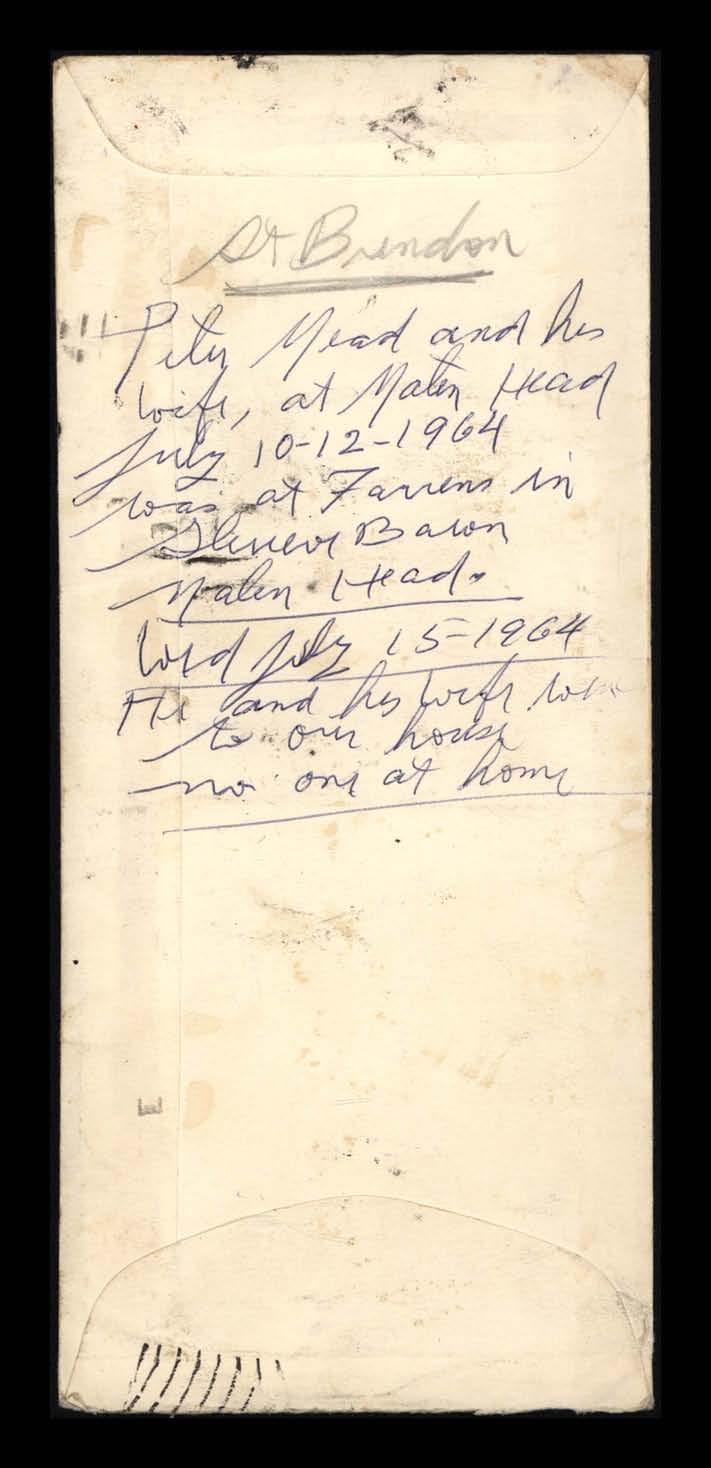 St Brendon
Peter Mead and his
wife, at Malin Head
July 10-12-1964
was at Farrens in
Baron
Malin Head.
Wed July 15-1964
He and his wife
to our house
no one at home
E